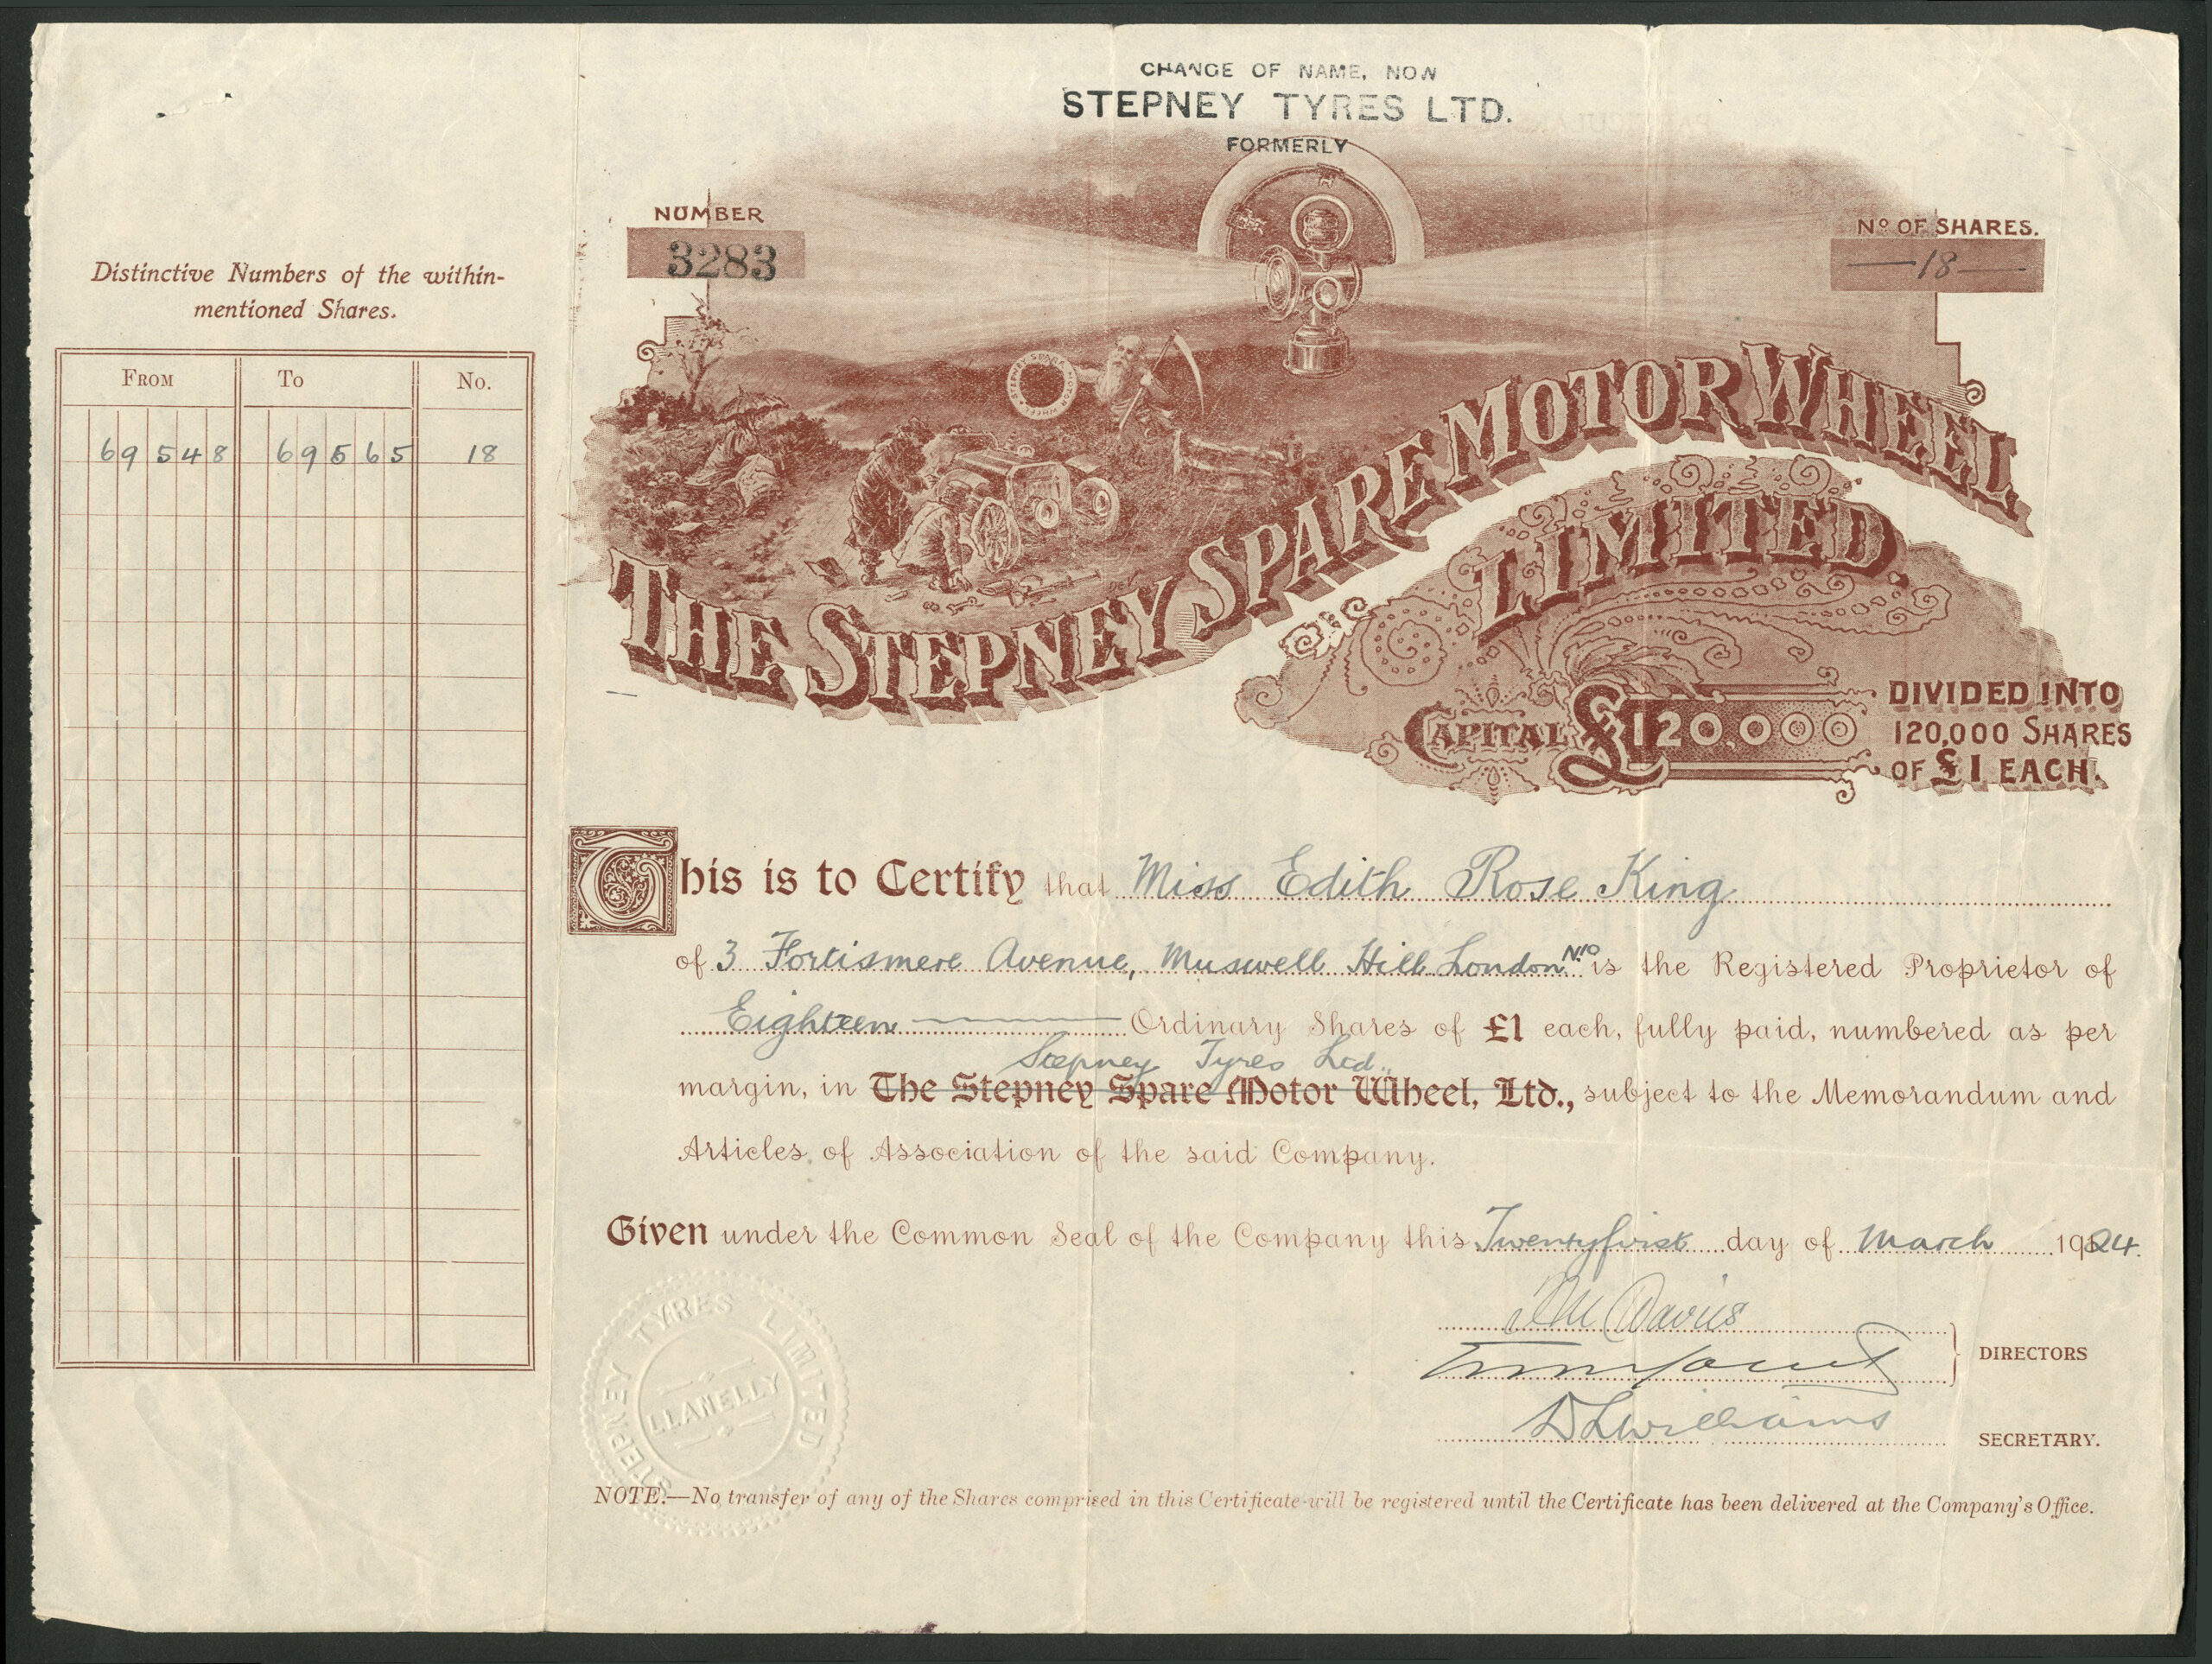 CHANGE OF NAME, NOW
STEPNEY TYRES LTD.
FORMERLY
NUMBER
3283
Nº OF SHARES.
18
STEPNEY SPARE MOTOR WHEEL
THE STEPNEY SPARE MOTOR WHEEL
LIMITED.
CAPITAL £120,000
DIVIDED INTO
120,000 SHARES
OF £1 EACH.
Distinctive Numbers of the within-
mentioned Shares.
FROM To No.
69548 69565 18
This is to Certify that Miss Edith Rose King
of 3 Fortismere Avenue, Muswell Hill London N10 is the Registered Proprietor of
Eighteen Ordinary Shares of £1 each, fully paid, numbered as per
Stepney Tyres Ltd.,
margin, in The Stepney Spare Motor Wheel, Ltd., subject to the Memorandum and
Articles of Association of the said Company.
Given under the Common Seal of the Company this Twentyfirst day of March 1924.
Davies
DIRECTORS
D L Williams
SECRETARY.
STEPNEY TYRES LIMITED
LLANELLY
NOTE.—No transfer of any of the Shares comprised in this Certificate will be registered until the Certificate has been delivered at the Company's Office.